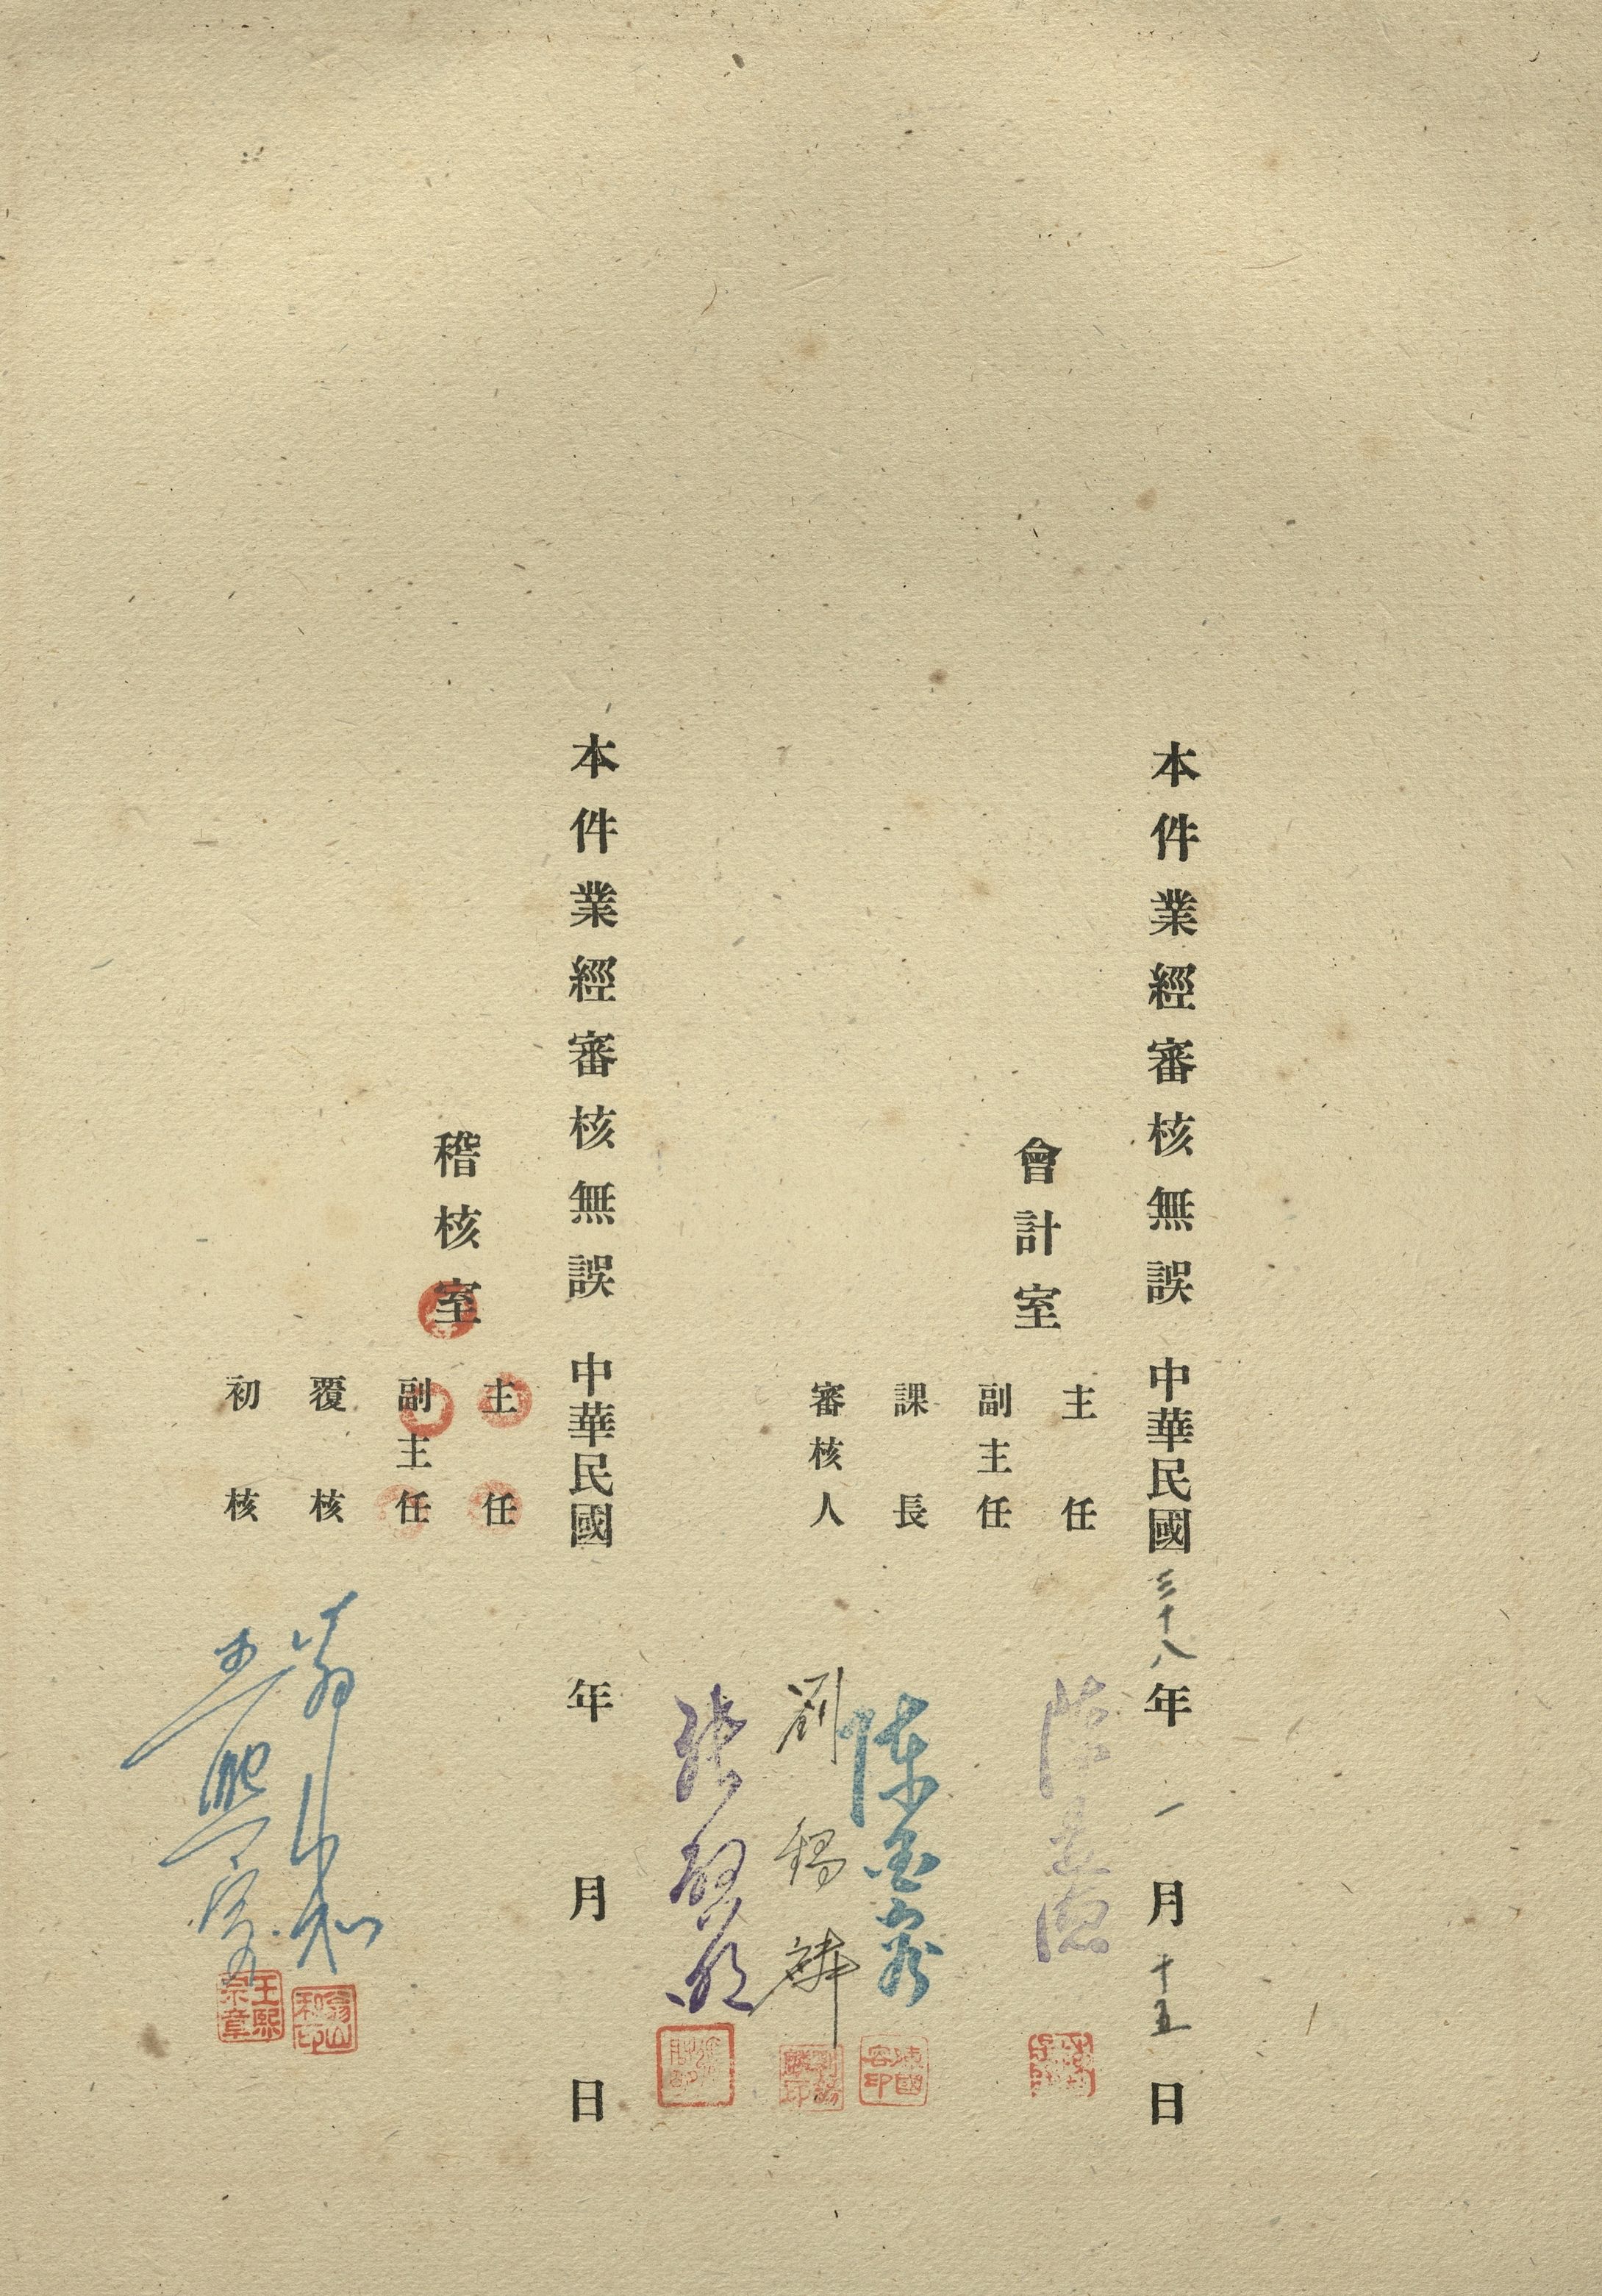 本件業經審核無誤 中華民國三十八年一月十五日
會計室
主任
副主任
課長 陳國容
審核人 劉錫麟
張
本件業經審核無誤 中華民國 年 月 日
稽核室
主任
副主任
覆核 翁山和
初核 王熙宗
陳國容印
翁山和印
王熙宗章